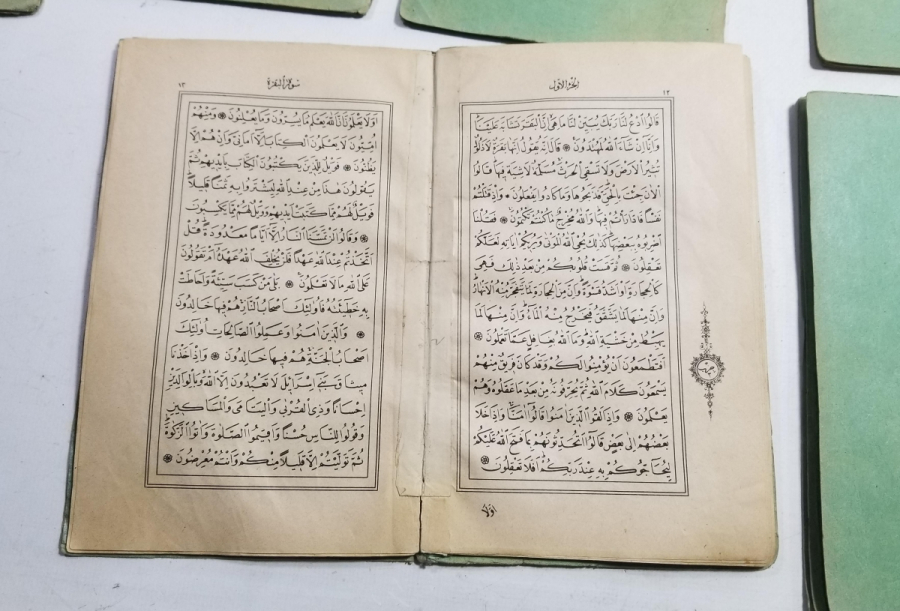 ١٢
الجزء الأول
قَالُوا ادْعُ لَنَا رَبَّكَ يُبَيِّنْ لَنَا مَا هِيَ إِنَّ الْبَقَرَ تَشَابَهَ عَلَيْنَا
وَإِنَّا إِنْ شَاءَ اللهُ لَمُهْتَدُونَ ۞ قَالَ إِنَّهُ يَقُولُ إِنَّهَا بَقَرَةٌ لَا ذَلُولٌ
تُثِيرُ الْأَرْضَ وَلَا تَسْقِي الْحَرْثَ مُسَلَّمَةٌ لَا شِيَةَ فِيهَا قَالُوا
الْآنَ جِئْتَ بِالْحَقِّ فَذَبَحُوهَا وَمَا كَادُوا يَفْعَلُونَ ۞ وَإِذْ قَتَلْتُمْ
نَفْسًا فَادَّارَأْتُمْ فِيهَا وَاللهُ مُخْرِجٌ مَا كُنْتُمْ تَكْتُمُونَ ۞ فَقُلْنَا
اضْرِبُوهُ بِبَعْضِهَا كَذَلِكَ يُحْيِي اللهُ الْمَوْتَى وَيُرِيكُمْ آيَاتِهِ لَعَلَّكُمْ
تَعْقِلُونَ ۞ ثُمَّ قَسَتْ قُلُوبُكُمْ مِنْ بَعْدِ ذَلِكَ فَهِيَ
كَالْحِجَارَةِ أَوْ أَشَدُّ قَسْوَةً وَإِنَّ مِنَ الْحِجَارَةِ لَمَا يَتَفَجَّرُ مِنْهُ الْأَنْهَارُ
وَإِنَّ مِنْهَا لَمَا يَشَّقَّقُ فَيَخْرُجُ مِنْهُ الْمَاءُ وَإِنَّ مِنْهَا لَمَا
يَهْبِطُ مِنْ خَشْيَةِ اللهِ وَمَا اللهُ بِغَافِلٍ عَمَّا تَعْمَلُونَ ۞
أَفَتَطْمَعُونَ أَنْ يُؤْمِنُوا لَكُمْ وَقَدْ كَانَ فَرِيقٌ مِنْهُمْ
يَسْمَعُونَ كَلَامَ اللهِ ثُمَّ يُحَرِّفُونَهُ مِنْ بَعْدِ مَا عَقَلُوهُ وَهُمْ
يَعْلَمُونَ ۞ وَإِذَا لَقُوا الَّذِينَ آمَنُوا قَالُوا آمَنَّا وَإِذَا خَلَا
بَعْضُهُمْ إِلَى بَعْضٍ قَالُوا أَتُحَدِّثُونَهُمْ بِمَا فَتَحَ اللهُ عَلَيْكُمْ
لِيُحَاجُّوكُمْ بِهِ عِنْدَ رَبِّكُمْ أَفَلَا تَعْقِلُونَ ۞
اولا
سورة البقرة
١٣
أَوَلَا يَعْلَمُونَ أَنَّ اللهَ يَعْلَمُ مَا يُسِرُّونَ وَمَا يُعْلِنُونَ ۞ وَمِنْهُمْ
أُمِّيُّونَ لَا يَعْلَمُونَ الْكِتَابَ إِلَّا أَمَانِيَّ وَإِنْ هُمْ إِلَّا
يَظُنُّونَ ۞ فَوَيْلٌ لِلَّذِينَ يَكْتُبُونَ الْكِتَابَ بِأَيْدِيهِمْ ثُمَّ
يَقُولُونَ هَذَا مِنْ عِنْدِ اللهِ لِيَشْتَرُوا بِهِ ثَمَنًا قَلِيلًا
فَوَيْلٌ لَهُمْ مِمَّا كَتَبَتْ أَيْدِيهِمْ وَوَيْلٌ لَهُمْ مِمَّا يَكْسِبُونَ
۞ وَقَالُوا لَنْ تَمَسَّنَا النَّارُ إِلَّا أَيَّامًا مَعْدُودَةً قُلْ
أَتَّخَذْتُمْ عِنْدَ اللهِ عَهْدًا فَلَنْ يُخْلِفَ اللهُ عَهْدَهُ أَمْ تَقُولُونَ
عَلَى اللهِ مَا لَا تَعْلَمُونَ ۞ بَلَى مَنْ كَسَبَ سَيِّئَةً وَأَحَاطَتْ
بِهِ خَطِيئَتُهُ فَأُولَئِكَ أَصْحَابُ النَّارِ هُمْ فِيهَا خَالِدُونَ
۞ وَالَّذِينَ آمَنُوا وَعَمِلُوا الصَّالِحَاتِ أُولَئِكَ
أَصْحَابُ الْجَنَّةِ هُمْ فِيهَا خَالِدُونَ ۞ وَإِذْ أَخَذْنَا
مِيثَاقَ بَنِي إِسْرَائِيلَ لَا تَعْبُدُونَ إِلَّا اللهَ وَبِالْوَالِدَيْنِ
إِحْسَانًا وَذِي الْقُرْبَى وَالْيَتَامَى وَالْمَسَاكِينِ
وَقُولُوا لِلنَّاسِ حُسْنًا وَأَقِيمُوا الصَّلَوةَ وَآتُوا الزَّكَوةَ
ثُمَّ تَوَلَّيْتُمْ إِلَّا قَلِيلًا مِنْكُمْ وَأَنْتُمْ مُعْرِضُونَ ۞